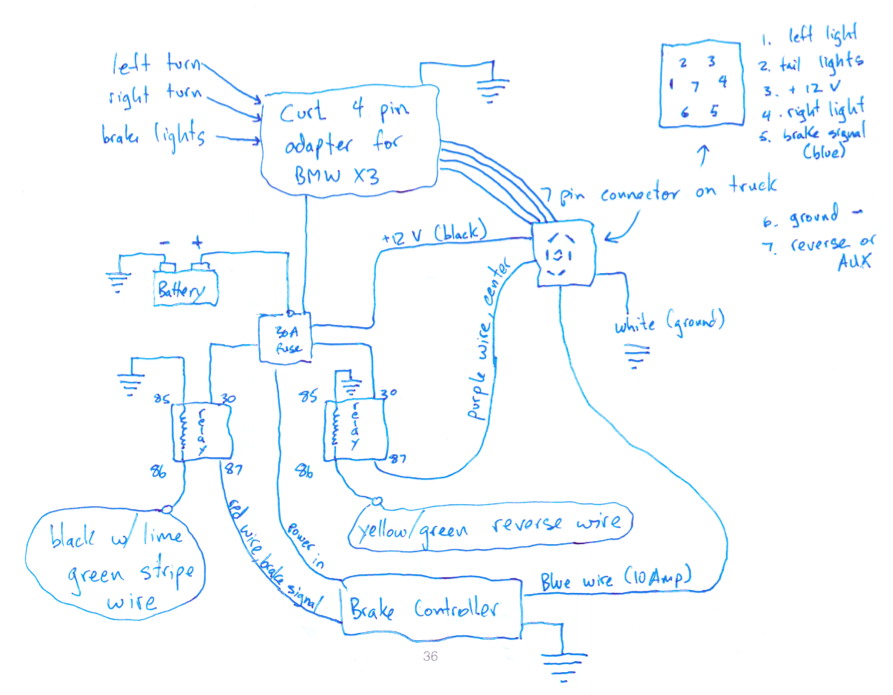 left turn
right turn
brake lights
Curt 4 pin
adapter for
BMW X3
2 3
1 7 4
6 5
1. left light
2. tail lights
3. + 12 V
4. right light
5. brake signal
(blue)
6. ground -
7. reverse or
AUX
7 pin connector on truck
+12 V (black)
- +
Battery
30A
fuse
purple wire, center
white (ground)
85 30
relay
86 87
85 30
relay
86 87
black w/ lime
green stripe
wire
red wire, brake signal
power in
yellow/green reverse wire
Brake Controller
Blue wire (10 Amp)
36